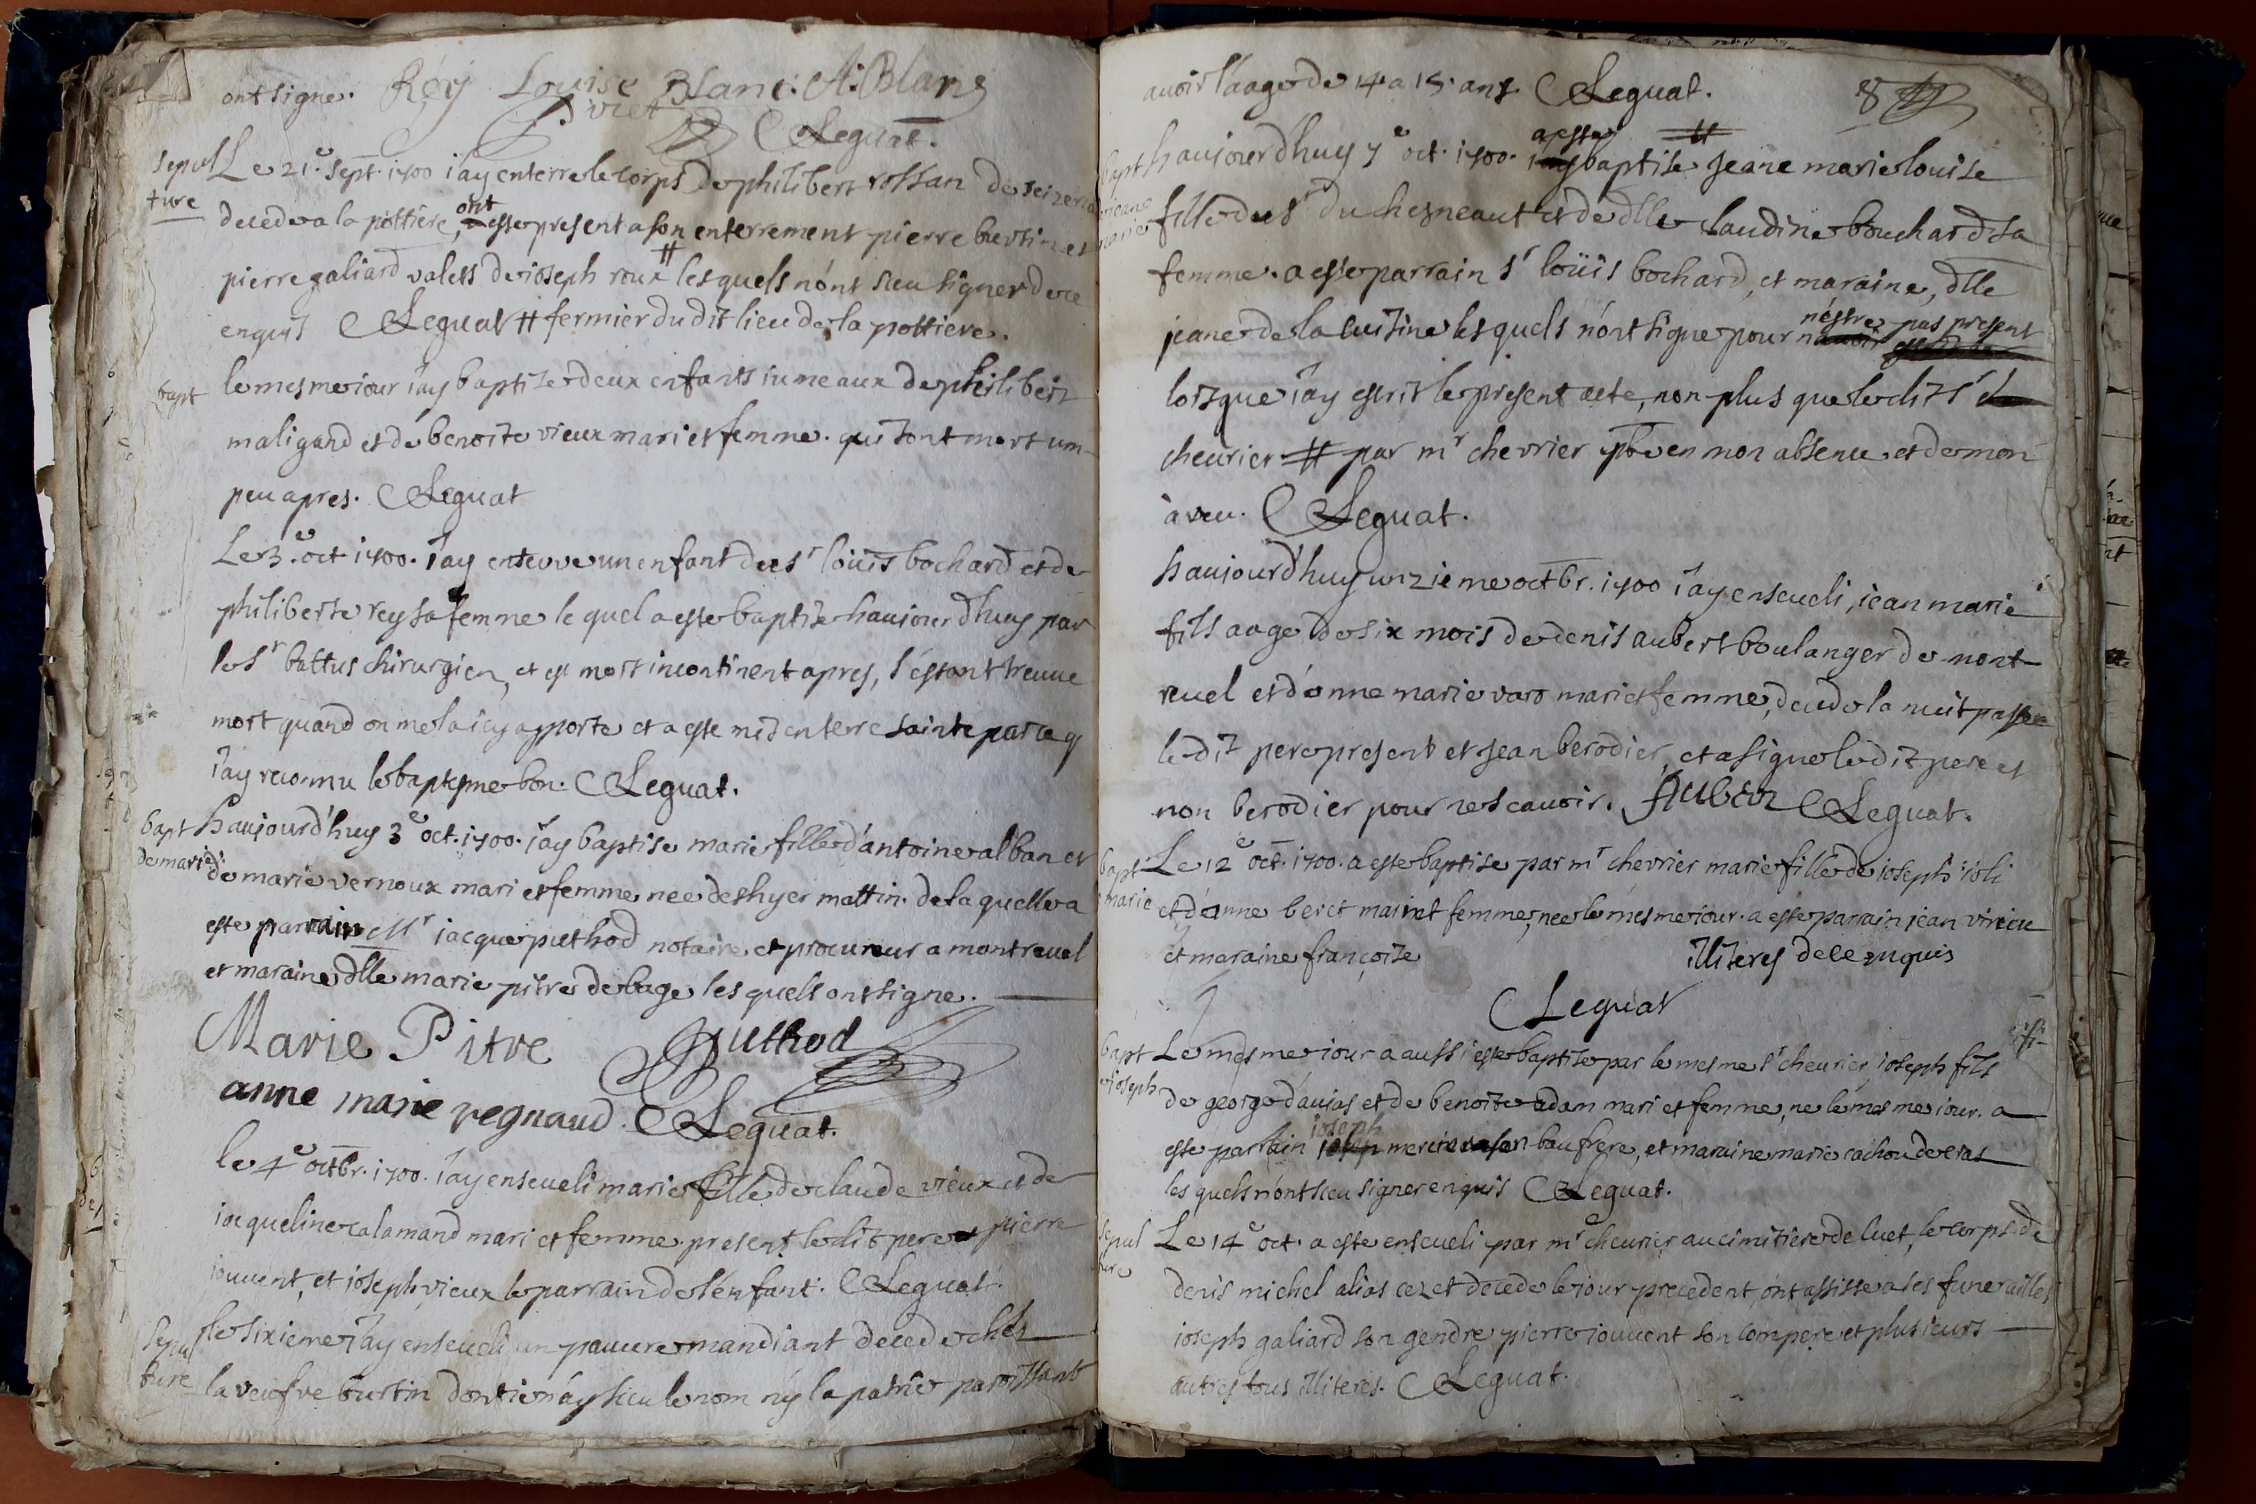 ont signe. Rey Louise Blanc. A. Blanc
Leguat.
sepul Le 21e sept. 1700 i'ay enterre le corps de philibert rossan de seizeria
ture decede a la pottiere, ont este present a son enterrement pierre burtin et
pierre galiard valets de ioseph roux # lesquels n'ont sceu signer de ce
enquis Leguat # fermier du dit lieu de la pottiere.
bapt le mesme iour i'ay baptise deux enfants iumeaux de philibert
maligand et de benoite vieux mari et femme. qui sont mort un
peu apres. Leguat
Le 3.e oct 1700. i'ay enterre un enfant du sr loüis bochard et de
philiberte rey sa femme le quel a este baptise haujourdhuy par
le sr battus chirurgien, et est mort incontinent apres, s'estant treuve
mort quand on me la icy apporte et a este mis en terre sainte parce q
i'ay reconnu le baptesme bon. Leguat.
bapt haujourd'huy 3e oct. 1700. i'ay baptise marie fille d'antoine alban et
de marie de marie vernoux mari et femme nee des hyer mattin. de la quelle a
este parrain sr iacque puthod notaire et procureur a montrevel
et maraine dlle marie pitre de bage les quels ont signe.
Marie Pitre Puthod
anne marie regnaud. Leguat.
le 4e octbr. 1700. i'ay enseveli marie fille de claude vieux et de
iacqueline calamand mari et femme present le dit pere et pierre
iouvent, et ioseph vieux le parrain de l'enfant. Leguat.
sepul le sixieme i'ay enseveli un pauvre mandiant decede chés
ture la veufve burtin dont ie n'ay sceu le nom ny la patrie paroissant
avoir l'aage de 14 a 15. ans. Leguat. 8
bapt haujourdhuy 7e oct. 1700. a este # baptise Jeane marie louise
jeane marie fille du sr duchesneaut et de dlle claudine bouchard sa
femme. a este parrain sr loüis bochard, et maraine, dlle
jeane de la cuisine les quels n'ont signe pour n'estre pas present
lorsque i'ay escrit le present acte, non plus que le dit sr
chevrier # par mr chevrier pbre en mon absence et de mon
àveu. Leguat.
haujourd'huy unzieme octbr. 1700 i'ay enseveli, jean marie
fils aage de six mois de denis aubert boulanger de mont-
revel et d'anne marie varo mari et femme, decede la nuit passee
le dit pere present et Jean berodier, et a signe le dit pere et
non berodier pour ne scavoir. Aubert Leguat.
bapt Le 12e oct. 1700. a este baptise par mr chevrier marie fille de ioseph ioli
marie et d'anne beret mari et femme, nee le mesme iour. a este parrain jean virieu
et maraine françoise illiteres de ce enquis
Leguat
bapt Le mesme iour a aussi este baptise par le mesme sr chevrier, ioseph fils
ioseph de george daujas et de benoite adam mari et femme, ne le mesme iour. a
este parrain ioseph mercier son baufrere, et maraine marie cachou de cras
les quels n'ont sceu signer enquis Leguat.
sepul Le 14e oct. a este enseveli par mr chevrier au cimitiere de cuet, le corps de
ture denis michel alias cezet decede le jour precedent, ont assisste a ses funerailles
ioseph galiard son gendre pierre iouvent son compere et plusieurs
autres tous illiteres. Leguat.